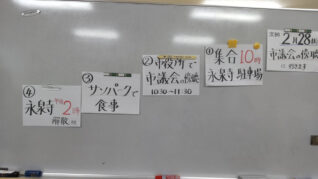 2月28(水)
市議会の傍聴
① 集合 10時
永泉寺 駐車場
② 市役所で
市議会の傍聴
10:30~11:30
③ サンパークで
食事
④ 永泉寺 午後2時
解散